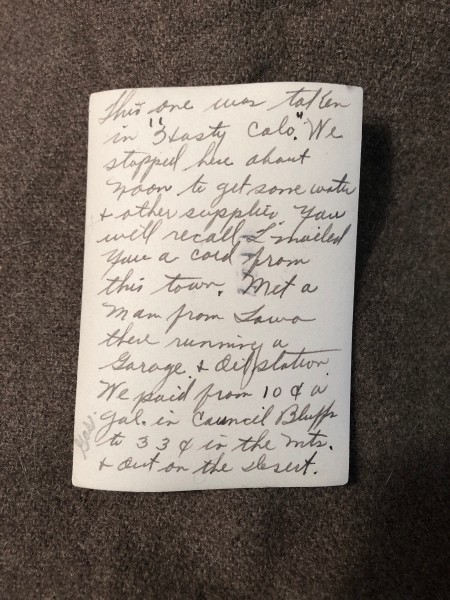 This one was taken
in "Hasty Colo." We
stopped here about
noon to get some water
& other supplies. You
will recall I mailed
you a card from
this town. Met a
man from Iowa
there running a
Garage & Oil station.
We paid from 10¢ a
gal. in Council Bluffs
to 33¢ in the mts.
& out on the desert.
Gas.